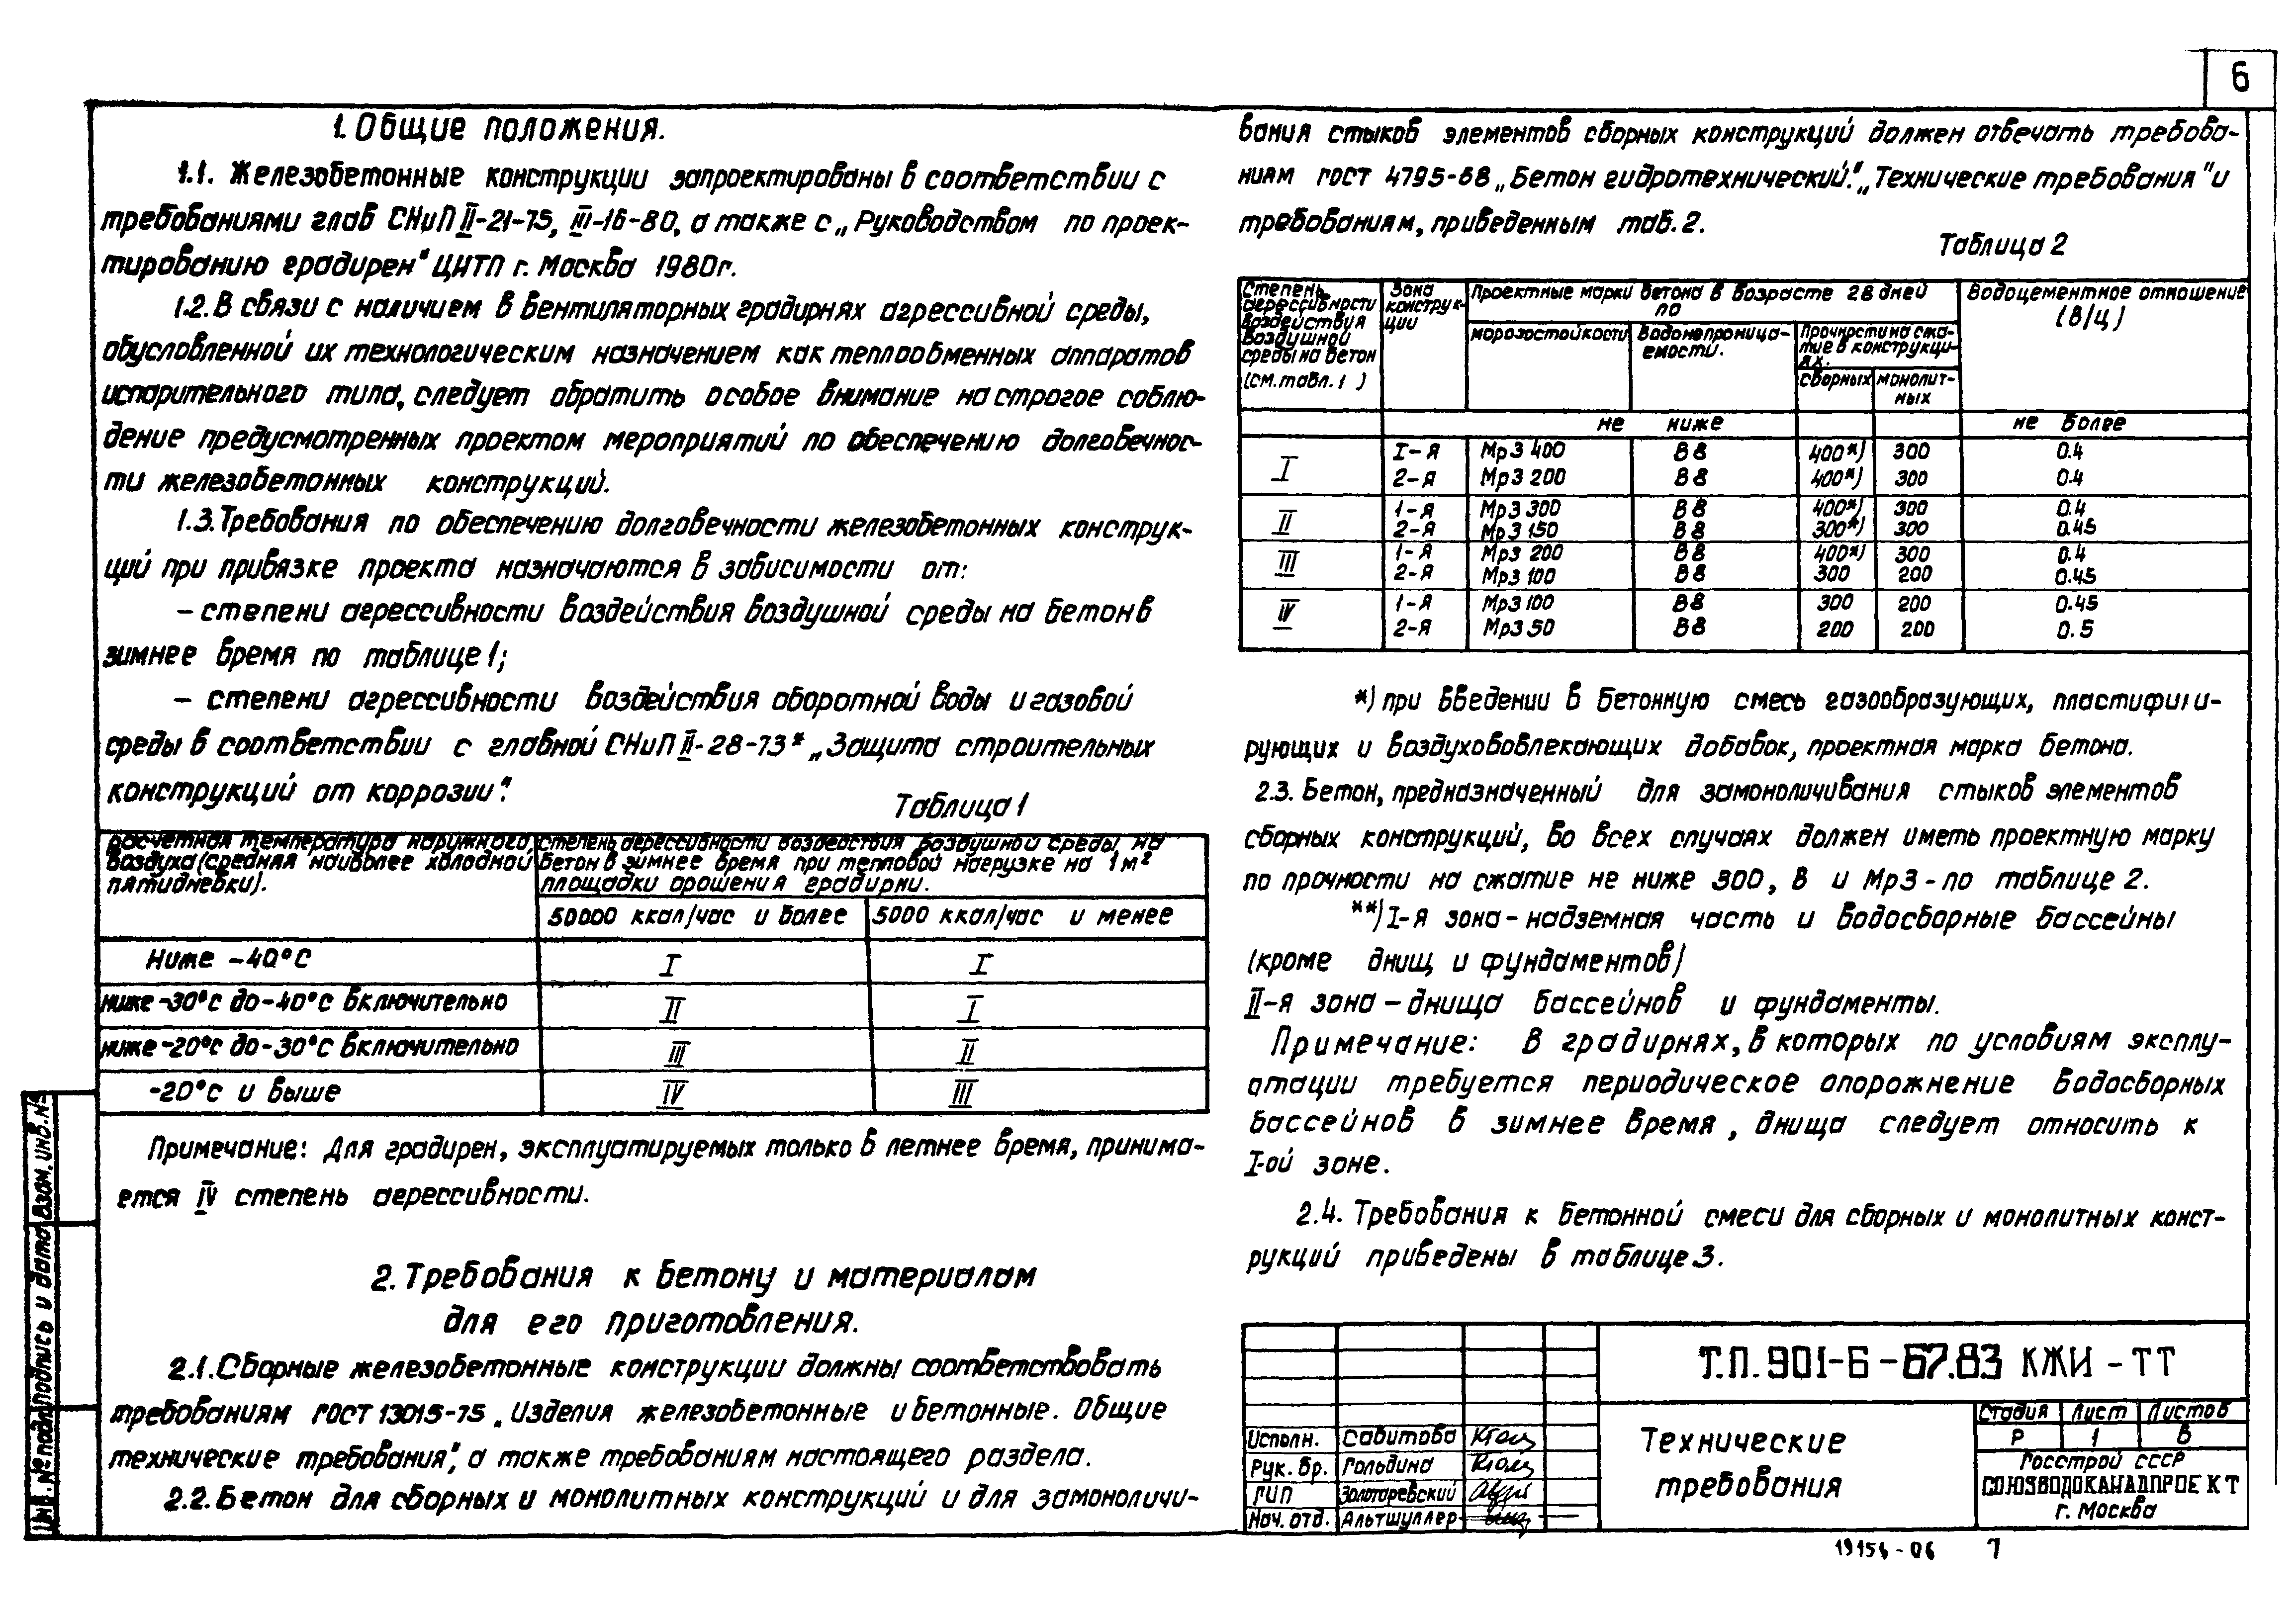 6
1. Общие положения.
1.1. Железобетонные конструкции запроектированы в соответствии с
требованиями глав СНиП II-21-75, III-16-80, а также с „Руководством по проек-
тированию градирен" ЦИТП г. Москва 1980г.
1.2. В связи с наличием в вентиляторных градирнях агрессивной среды,
обусловленной их технологическим назначением как теплообменных аппаратов
испарительного типа, следует обратить особое внимание на строгое соблю-
дение предусмотренных проектом мероприятий по обеспечению долговечнос-
ти железобетонных конструкций.
1.3. Требования по обеспечению долговечности железобетонных конструк-
ций при привязке проекта назначаются в зависимости от:
– степени агрессивности воздействия воздушной среды на бетон в
зимнее время по таблице 1;
– степени агрессивности воздействия оборотной воды и газовой
среды в соответствии с главной СНиП II-28-73* „Защита строительных
конструкций от коррозии".
Таблица 1
Расчетная температура наружного воздуха (средняя наиболее холодной пятидневки).
Степень агрессивности воздействия воздушной среды на
бетон в зимнее время при тепловой нагрузке на 1 м²
площадки орошения градирни.
50000 ккал/час и более 5000 ккал/час и менее
Ниже -40°С I I
ниже -30°с до -40°с включительно II I
ниже -20°с до -30°с включительно III II
-20°с и выше IV III
Примечание: Для градирен, эксплуатируемых только в летнее время, принима-
ется IV степень агрессивности.
2. Требования к бетону и материалам
для его приготовления.
2.1. Сборные железобетонные конструкции должны соответствовать
требованиям ГОСТ 13015-75 „Изделия железобетонные и бетонные. Общие
технические требования", а также требованиям настоящего раздела.
2.2. Бетон для сборных и монолитных конструкций и для замоноличи-
вания стыков элементов сборных конструкций должен отвечать требова-
ниям ГОСТ 4795-68 „Бетон гидротехнический." „Технические требования" и
требованиям, приведенным таб. 2.
Таблица 2
Степень агрессивности воздействия воздушной среды на бетон (см. табл. 1)
Зона конструк-ции
Проектные марки бетона в возрасте 28 дней по
Водоцементное отношение (В/Ц)
морозостойкости
Водонепроница-емости.
Прочности на сжа-тие в конструкци-ях.
сборных монолит-ных
не ниже не более
I I-я Мрз 400 В8 400*) 300 0.4
2-я Мрз 200 В8 400*) 300 0.4
II 1-я Мрз 300 В8 400*) 300 0.4
2-я Мрз 150 В8 300*) 300 0.45
III 1-я Мрз 200 В8 400*) 300 0.4
2-я Мрз 100 В8 300 200 0.45
IV 1-я Мрз 100 В8 300 200 0.45
2-я Мрз 50 В8 200 200 0.5
*) при введении в бетонную смесь газообразующих, пластифици-
рующих и воздухововлекающих добавок, проектная марка бетона.
2.3. Бетон, предназначенный для замоноличивания стыков элементов
сборных конструкций, во всех случаях должен иметь проектную марку
по прочности на сжатие не ниже 300, В и Мрз - по таблице 2.
**) I-я зона - надземная часть и водосборные бассейны
(кроме днищ и фундаментов)
II-я зона – днища бассейнов и фундаменты.
Примечание: В градирнях, в которых по условиям эксплу-
атации требуется периодическое опорожнение водосборных
бассейнов в зимнее время, днища следует относить к
I-ой зоне.
2.4. Требования к бетонной смеси для сборных и монолитных конст-
рукций приведены в таблице 3.
Т.П. 901-6-67.83 КЖИ - ТТ
Исполн. Савитова
Рук. бр. Гольдина
ГИП Золотаревский
Нач. отд. Альтшуллер
Технические
требования
Стадия Лист Листов
Р 1 6
Госстрой СССР
СОЮЗВОДОКАНАЛПРОЕКТ
г. Москва
Инв. № подл. Подпись и дата Взам. инв. №
19156-06 7